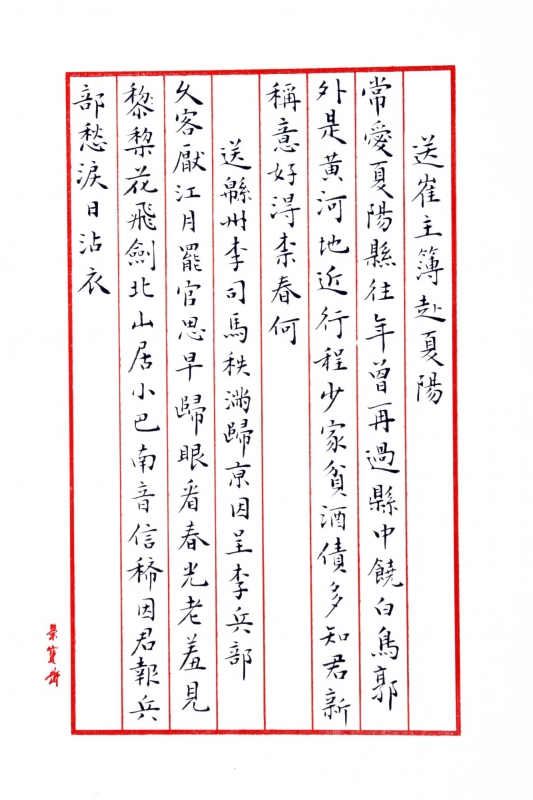 送崔主簿赴夏陽
常愛夏陽縣往年曾再過縣中饒白鳥郭
外是黃河地近行程少家貧酒債多知君新
稱意好得柰春何
送緜州李司馬秩滿歸京因呈李兵部
久客厭江月罷官思早歸眼看春光老羞見
黎棃花飛劍北山居小巴南音信稀因君報兵
部愁淚日沾衣
榮寶齋